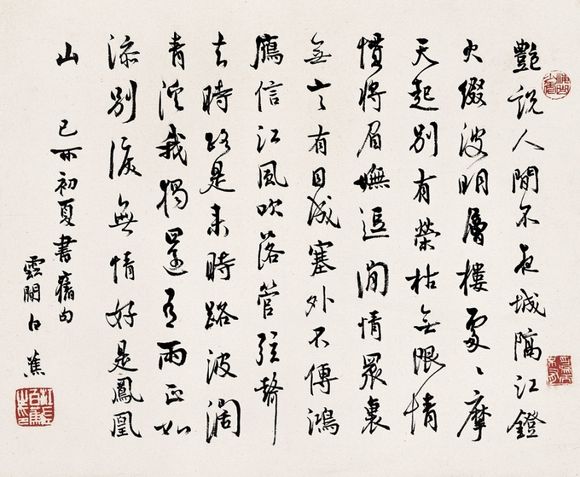 艷說人間不夜城隔江鐙
火綴波明層樓處〻摩
天起別有榮枯無限情
慣將眉嫵逗閒情眾裏
無言有目成塞外不傳鴻
鴈信江風吹落管弦聲
去時路是來時路波濶
青溪我獨還 雨正如
添別淚無情好是鳳凰
山
己亥初夏書舊句
雲間白蕉